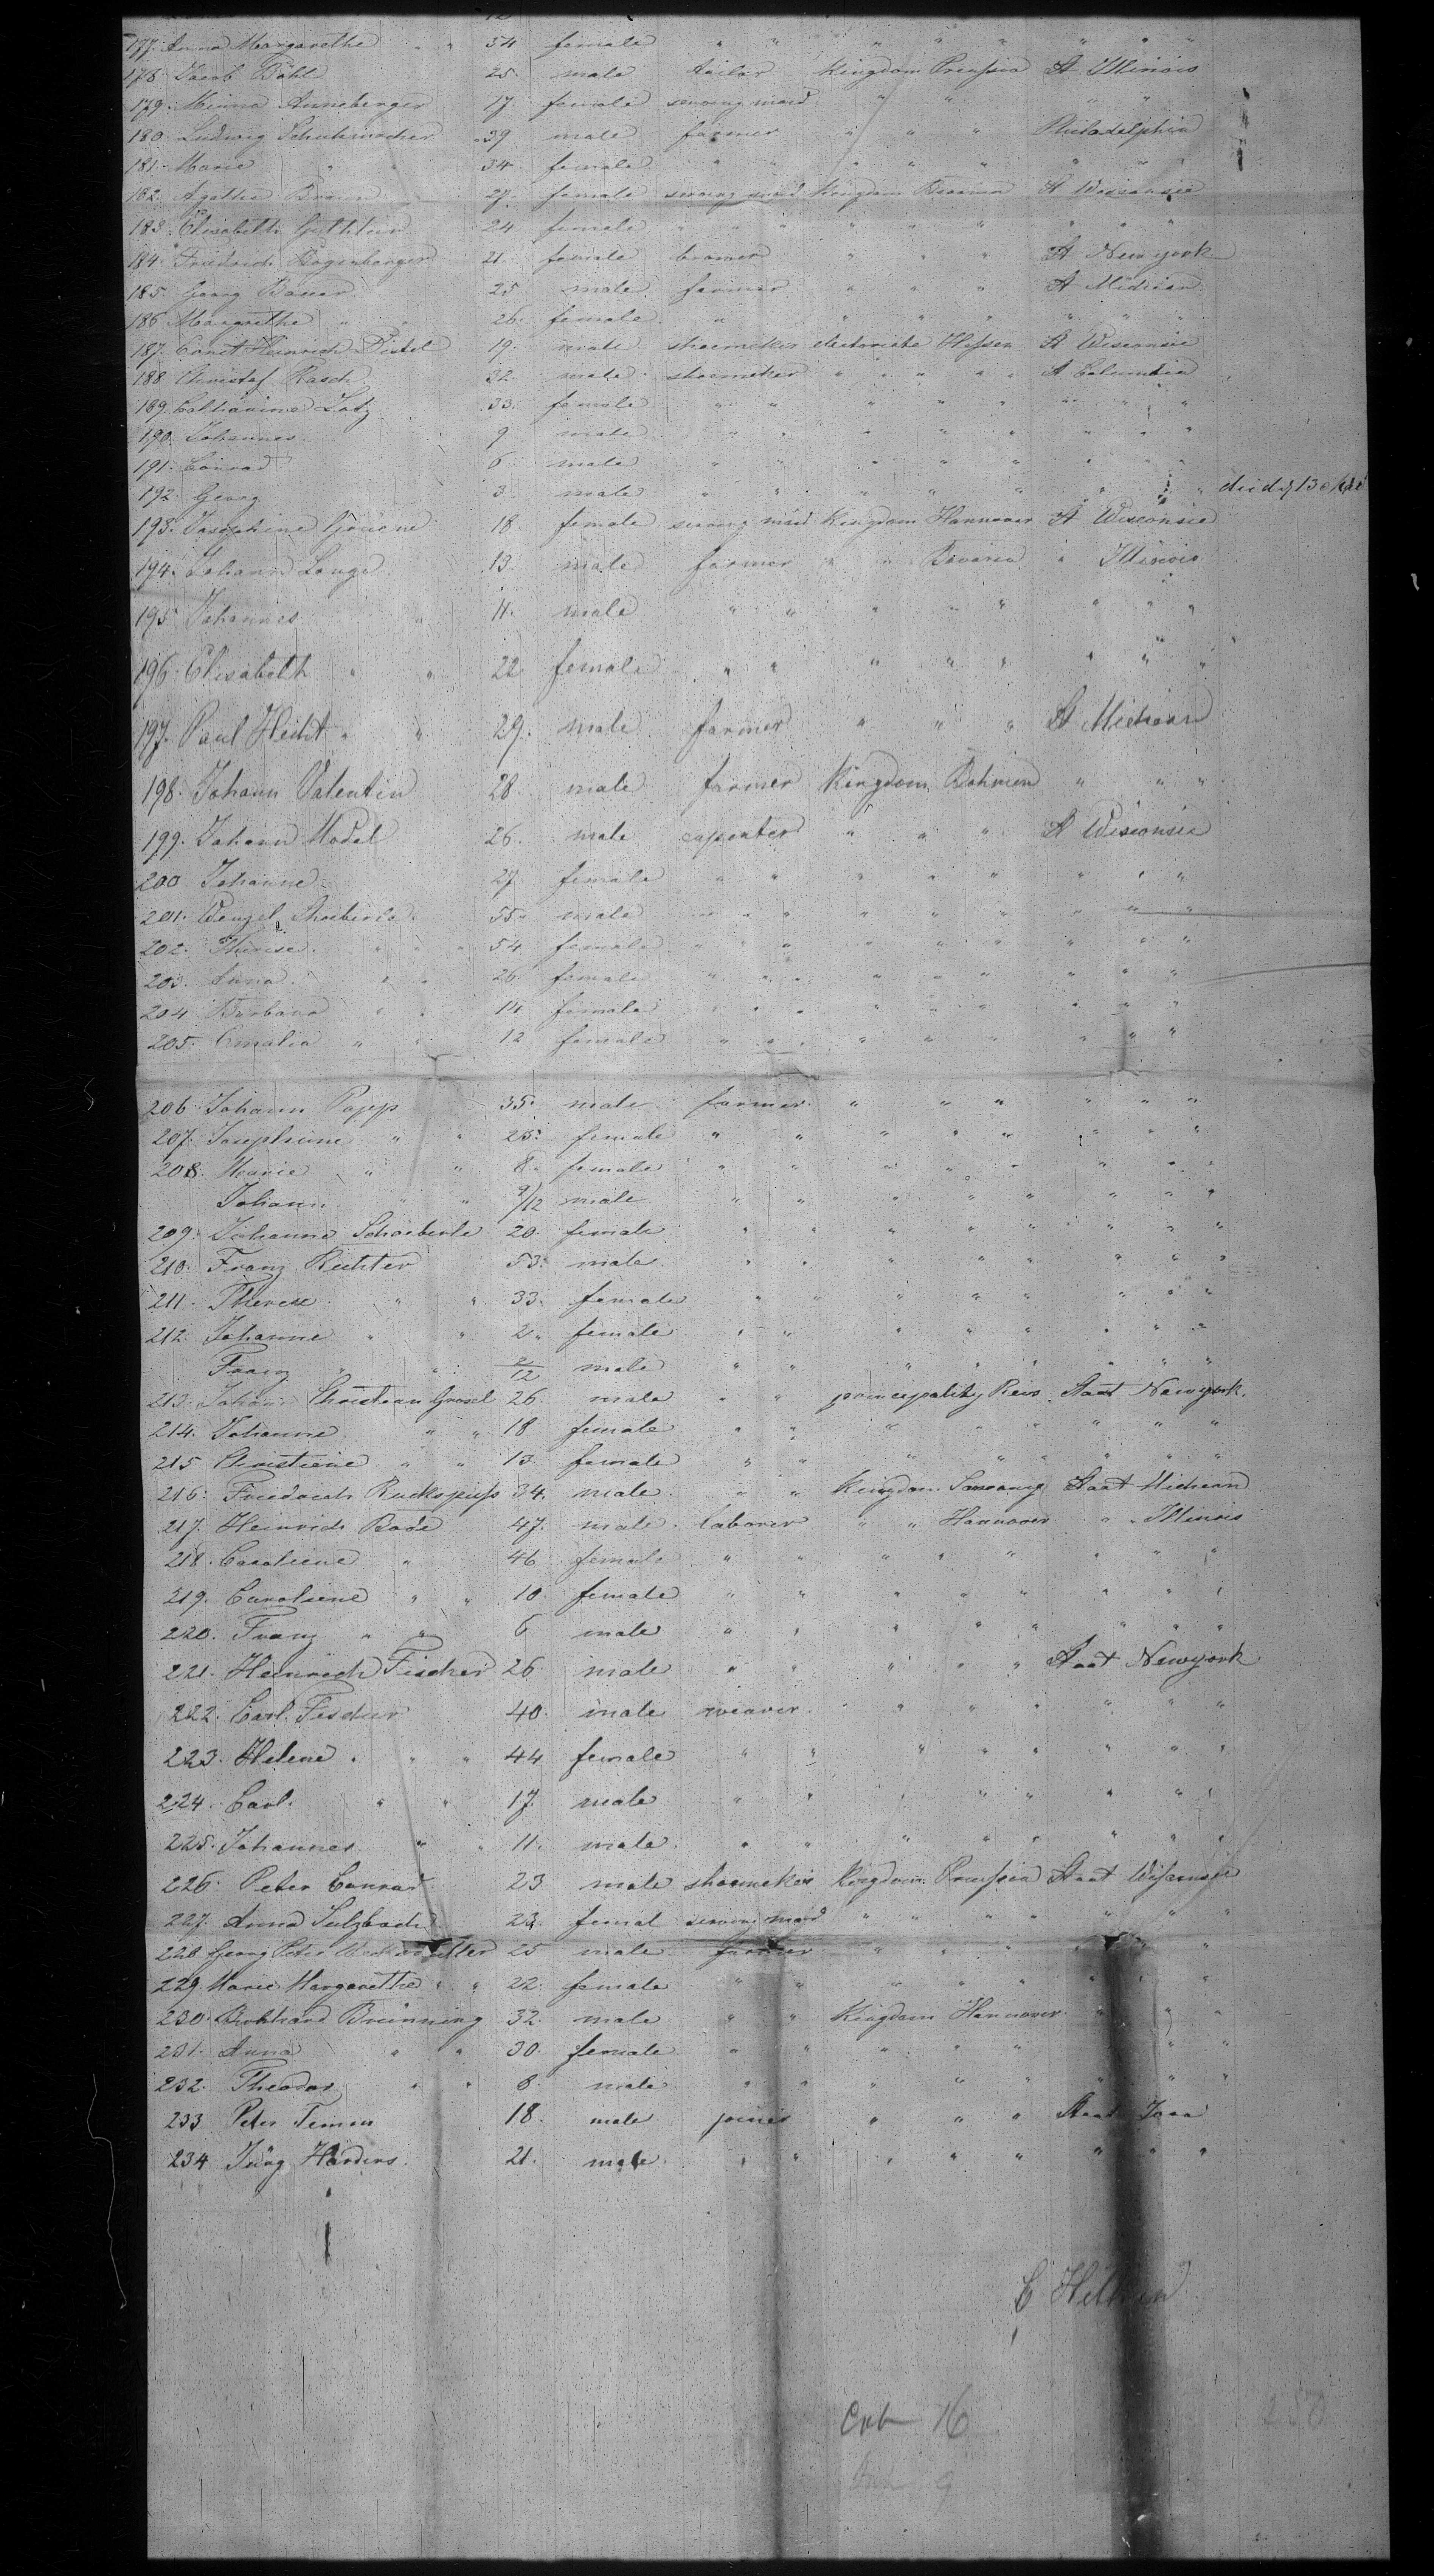 177. Anna Margarethe " " 54 female " " " " " " " "
178. Jacob Bähl 25. male tailor Kingdom Preussia St Illinois
179. Minna Anneberger 17. female serving maid " " " "
180. Ludwig Schuhmacher 39 male farmer " " " Philadelphia
181. Marie " " 34 female " " " " " " "
182. Agathe Braun 27. female serving maid Kingdom Bavaria St Wisconsie
183. Elisabeth 24 female " " " " " " " " "
184. Friedrich Bogenberger 21 female " " " St Newyork
185. Georg Bauer 25 male farmer " " " St Michian
186 Margarethe " " 26. female " " " " " " "
187. Ernst Heinrich Distel 19. male shoemeker Hessen St Wisconsie
188 Christof Rasch 32. male shoemeker " " " " St Columbia
189. Catharine Lotz 33. female " " " " " " " "
190. Johannes 9 male " " " " " " " "
191. Conrad 6 male " " " " " " " "
192. Georg 3 male " " " " " " " died 13
193. Josephine 18. female serving maid Kingdom Hannover St Wisconsie
194. Johann Lange 13. male farmer " " Bavaria " Illinois
195 Johannes " 11. male " " " " " " " "
196. Elisabeth " " 22 female " " " " " " " "
197. Paul Hecht " " 29. male farmer " " " St Michian
198. Johann Valentin 28. male farmer Kingdom Bohmen " " "
199. Johann Model 26. male capenter " " " St Wisconsie
200 Johanne 27 female " " " " " " " "
201. Wenzel 55 male " " " " " " " " "
202. Therese " " " 54 female " " " " " " " " "
203. Anna " " 26. female " " " " " " " " "
204 Barbara " " 14 female " " " " " " " " "
205. Emalia " " 12 female " " " " " " " " "
206 Johann Papp 35. male farmer " " " " " "
207. Josephine " " 25. female " " " " " " " "
208. Marie " " 8. female " " " " " " " "
Johann " " 9/12 male " " " " " " " "
209. Johanne Schoiberle 20. female " " " " " " " "
210. Franz Richter 53. male " " " " " " " "
211. Therese " " 33. female " " " " " " " "
212. Johanne " " 2. female " " " " " " " "
Franz " " 2/12 male " " " " " " " "
213. Johann Christian Grosel 26. male " " principality Reus Staat Newyork.
214. Johanne " " 18 female " " " " " " " "
215 Christiene " " 13. female " " " " " " " "
216. Friedrich 34. male " " Kingdom Staat Michean
217. Heinrich Bode 47. male laborer " " Hannover " " Illinois
218. Caroliene " 46 female " " " " " " " "
219. Caroliene " " 10 female " " " " " " " "
220. Franz " " 6 male " " " " " " " "
221. Heinrich Fischer 26. male " " " " " Staat Newyork
222. Carl Fischer 40. male weaver " " " " " " "
223. Helene " " " 44 female " " " " " " " "
224. Carl " " 17. male " " " " " " " "
225. Johannes " " 11. male " " " " " " " "
226. Peter Conrad 23 male shoemeker Kingdom Preussia Staat Wisconsie
227. Anna Sulzbach 23. femal serving maid " " " " " " "
228 Georg Peter 25 male farmer " " " " " "
229. Marie Margarethe " " 22. female " " " " " " " "
230. Brünning 32. male " " Kingdom Hannover " " "
231. Anna " " 30. female " " " " " " " "
232. Theodor " " 8. male " " " " " " " "
233 Peter 18. male " " " Staat
234 Jürg Harders 21. male " " " " " " " "
16
250
9